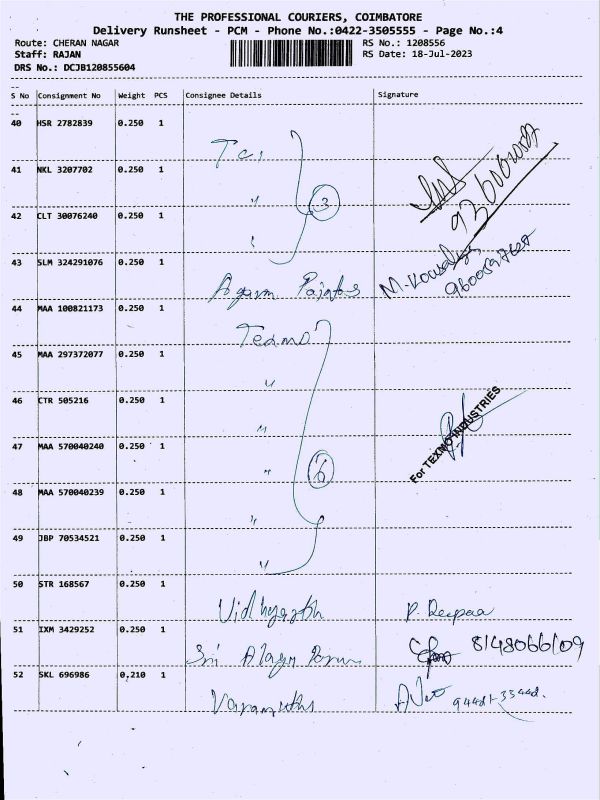 THE PROFESSIONAL COURIERS, COIMBATORE
Delivery Runsheet - PCM - Phone No.:0422-3505555 - Page No.:4
Route: CHERAN NAGAR RS No.: 1208556
Staff: RAJAN RS Date: 18-Jul-2023
DRS No.: DCJB120855604
S No Consignment No Weight PCS Consignee Details Signature
40 HSR 2782839 0.250 1
Tci
41 NKL 3207702 0.250 1
" 3
42 CLT 30076240 0.250 1
43 SLM 324291076 0.250 1
Agarm Paints M.
44 MAA 100821173 0.250 1
Texmo
45 MAA 297372077 0.250 1
"
46 CTR 505216 0.250 1
"
For TEXMO INDUSTRIES
47 MAA 570040240 0.250 1
" 6
48 MAA 570040239 0.250 1
"
49 JBP 70534521 0.250 1
"
50 STR 168567 0.250 1
P. Deepaa
51 IXM 3429252 0.250 1
Sri 8148066109
52 SKL 696986 0.210 1